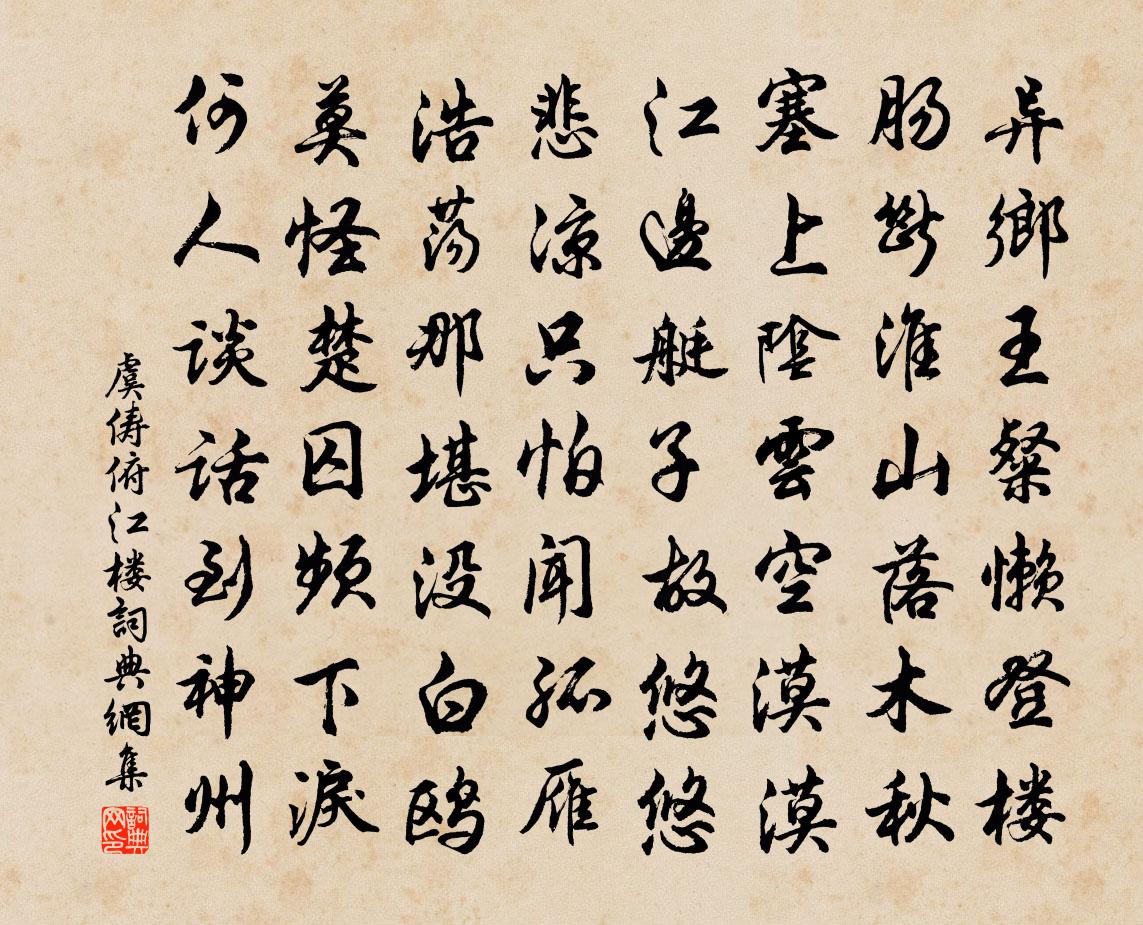 异鄉王粲懶登楼
肠断淮山落木秋
塞上陰雲空漠漠
江邊艇子故悠悠
悲凉只怕闻孤雁
浩荡那堪没白鸥
莫怪楚囚频下淚
何人谈话到神州
虞俦俯江楼詞典網集
詞典网印